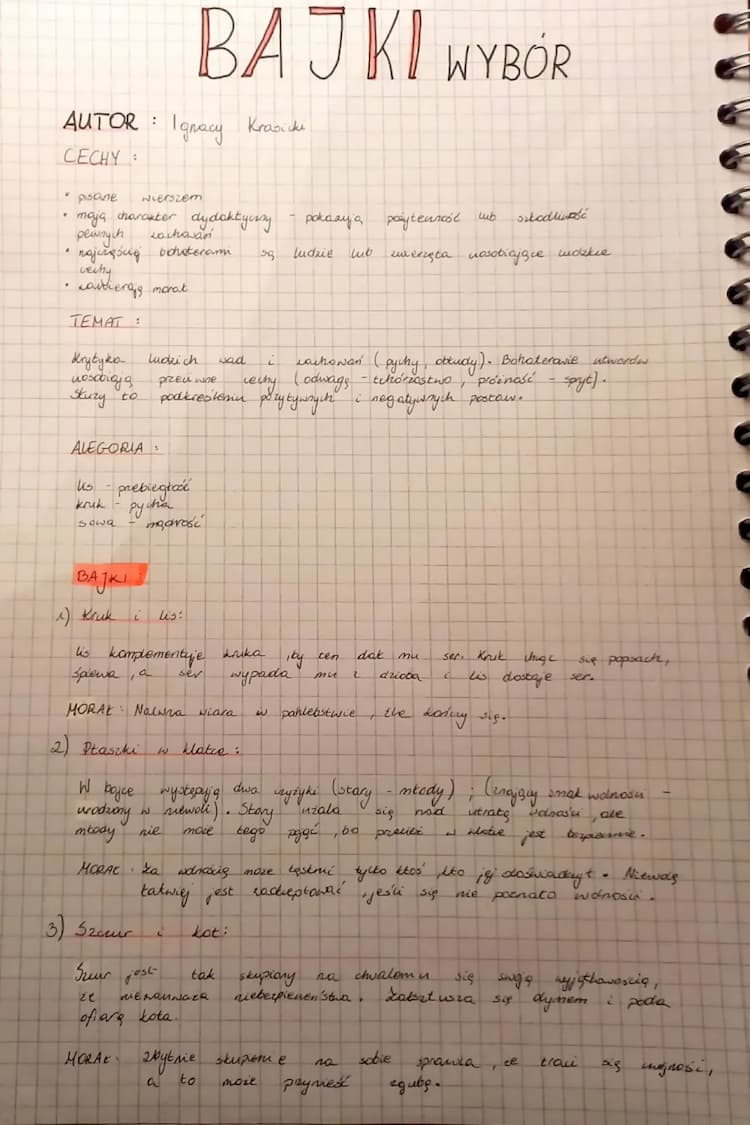 BAJKI WYBÓR
AUTOR : Ignacy Krasicki
CECHY :
• pisane wierszem
• mają charakter dydaktyczny - pokazują pożyteczność lub szkodliwość
pewnych zachowań
• najczęściej bohaterami są ludzie lub zwierzęta uosabiające ludzkie
cechy
• zawierają morał
TEMAT :
Krytyka ludzkich wad i zachowań (pychy, obłudy). Bohaterowie utworów
uosabiają przeciwne cechy (odwagę - tchórzostwo, próżność - spryt).
Służy to podkreśleniu pozytywnych i negatywnych postaw.
ALEGORIA :
lis - przebiegłość
kruk - pycha
sowa - mądrość
BAJKI
1) Kruk i lis:
Lis komplementuje kruka, by ten dał mu ser. Kruk chcąc się popisać,
śpiewa, a ser wypada mu z dzioba i lis dostaje ser.
MORAŁ: Naiwna wiara w pochlebstwie, źle kończy się.
2) Ptaszki w klatce:
W bajce występują dwa czyżyki (stary - młody) ; (znający smak wolności -
urodzony w niewoli). Stary użala się nad utratą wolności, ale
młody nie może tego pojąć, bo przecież w klatce jest bezpiecznie.
MORAŁ: Za wolnością może tęsknić tylko ktoś, kto jej doświadczył. Niewolę
łatwiej jest zaakceptować, jeśli się nie poznało wolności.
3) Szczur i kot:
Szczur jest tak skupiony na chwaleniu się swoją wyjątkowością,
że nie zauważa niebezpieczeństwa. się dymem i pada
ofiarą kota.
MORAŁ: Zbytnie skupienie na sobie sprawia, że traci się czujność,
a to może przynieść zgubę.